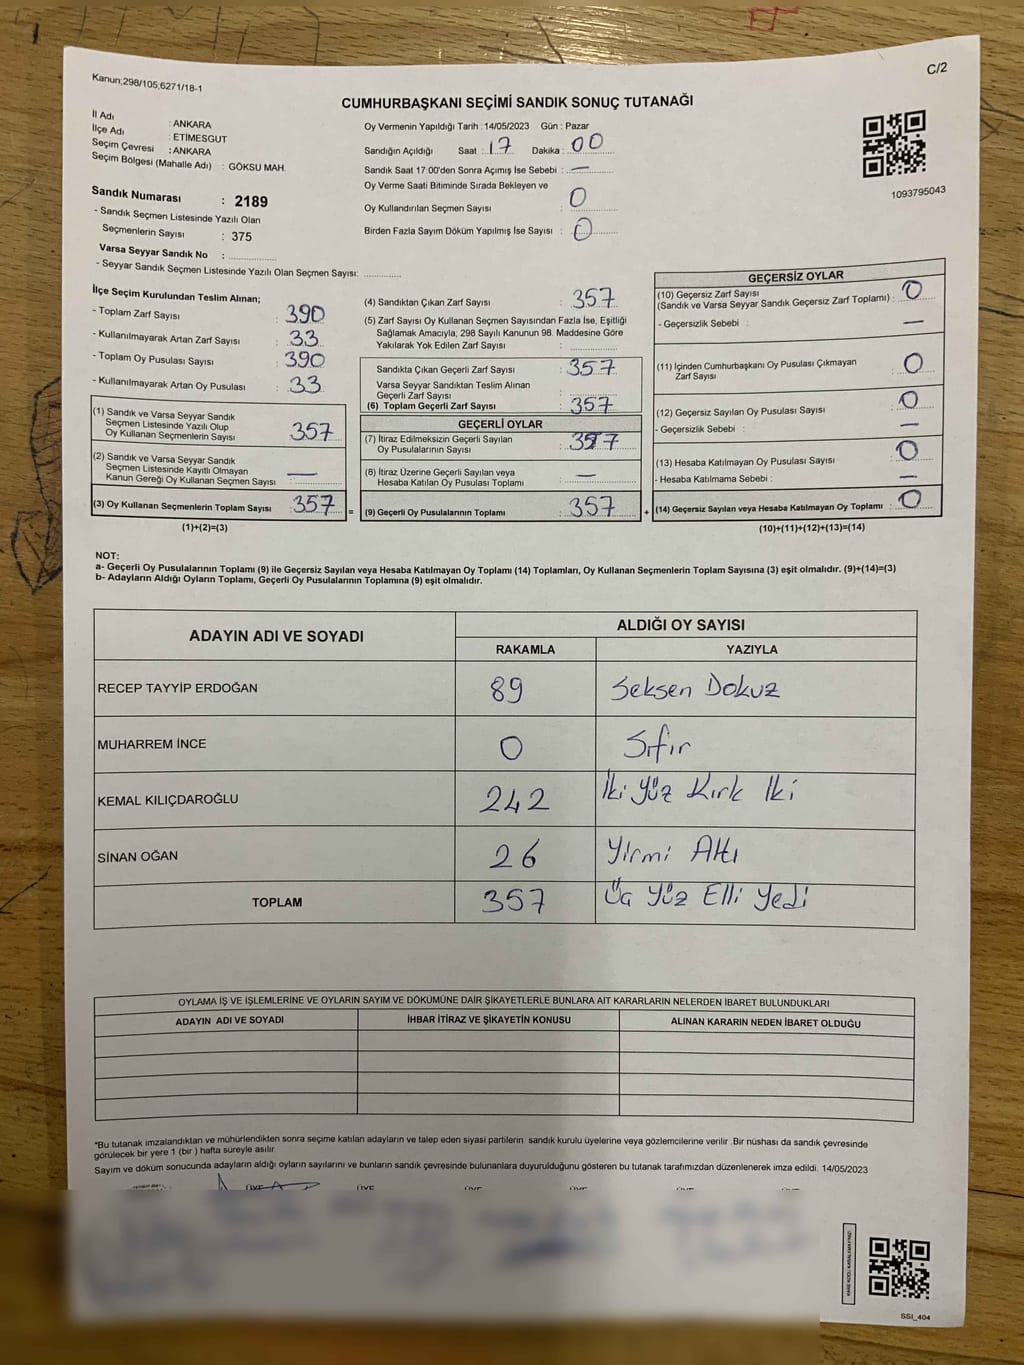 Kanun;298/105,6271/18-1
C/2
CUMHURBAŞKANI SEÇİMİ SANDIK SONUÇ TUTANAĞI
İl Adı : ANKARA
İlçe Adı : ETİMESGUT
Seçim Çevresi : ANKARA
Seçim Bölgesi (Mahalle Adı) : GÖKSU MAH.
Sandık Numarası : 2189
- Sandık Seçmen Listesinde Yazılı Olan
Seçmenlerin Sayısı : 375
Varsa Seyyar Sandık No :
- Seyyar Sandık Seçmen Listesinde Yazılı Olan Seçmen Sayısı:
Oy Vermenin Yapıldığı Tarih :14/05/2023 Gün : Pazar
Sandığın Açıldığı Saat : 17 Dakika : 00
Sandık Saat 17:00'den Sonra Açımış İse Sebebi : —
Oy Verme Saati Bitiminde Sırada Bekleyen ve
Oy Kullandırılan Seçmen Sayısı : 0
Birden Fazla Sayım Döküm Yapılmış İse Sayısı : 0
1093795043
İlçe Seçim Kurulundan Teslim Alınan;
- Toplam Zarf Sayısı : 390
- Kullanılmayarak Artan Zarf Sayısı : 33
- Toplam Oy Pusulası Sayısı : 390
- Kullanılmayarak Artan Oy Pusulası : 33
(1) Sandık ve Varsa Seyyar Sandık
Seçmen Listesinde Yazılı Olup
Oy Kullanan Seçmenlerin Sayısı : 357
(2) Sandık ve Varsa Seyyar Sandık
Seçmen Listesinde Kayıtlı Olmayan
Kanun Gereği Oy Kullanan Seçmen Sayısı : —
(3) Oy Kullanan Seçmenlerin Toplam Sayısı : 357 =
(1)+(2)=(3)
(4) Sandıktan Çıkan Zarf Sayısı : 357
(5) Zarf Sayısı Oy Kullanan Seçmen Sayısından Fazla İse, Eşitliği
Sağlamak Amacıyla; 298 Sayılı Kanunun 98. Maddesine Göre
Yakılarak Yok Edilen Zarf Sayısı :
Sandıkta Çıkan Geçerli Zarf Sayısı : 357
Varsa Seyyar Sandıktan Teslim Alınan
Geçerli Zarf Sayısı :
(6) Toplam Geçerli Zarf Sayısı : 357
GEÇERLİ OYLAR
(7) İtiraz Edilmeksizin Geçerli Sayılan
Oy Pusulalarının Sayısı : 357
(8) İtiraz Üzerine Geçerli Sayılan veya
Hesaba Katılan Oy Pusulası Toplamı : —
(9) Geçerli Oy Pusulalarının Toplamı : 357 +
GEÇERSİZ OYLAR
(10) Geçersiz Zarf Sayısı
(Sandık ve Varsa Seyyar Sandık Geçersiz Zarf Toplamı) : 0
- Geçersizlik Sebebi : —
(11) İçinden Cumhurbaşkanı Oy Pusulası Çıkmayan
Zarf Sayısı : 0
(12) Geçersiz Sayılan Oy Pusulası Sayısı : 0
- Geçersizlik Sebebi : —
(13) Hesaba Katılmayan Oy Pusulası Sayısı : 0
- Hesaba Katılmama Sebebi : —
(14) Geçersiz Sayılan veya Hesaba Katılmayan Oy Toplamı : 0
(10)+(11)+(12)+(13)=(14)
NOT:
a- Geçerli Oy Pusulalarının Toplamı (9) ile Geçersiz Sayılan veya Hesaba Katılmayan Oy Toplamı (14) Toplamları, Oy Kullanan Seçmenlerin Toplam Sayısına (3) eşit olmalıdır. (9)+(14)=(3)
b- Adayların Aldığı Oyların Toplamı, Geçerli Oy Pusulalarının Toplamına (9) eşit olmalıdır.
ADAYIN ADI VE SOYADI
ALDIĞI OY SAYISI
RAKAMLA YAZIYLA
RECEP TAYYİP ERDOĞAN 89 Seksen Dokuz
MUHARREM İNCE 0 Sıfır
KEMAL KILIÇDAROĞLU 242 İki Yüz Kırk İki
SİNAN OĞAN 26 Yirmi Altı
TOPLAM 357 Üç Yüz Elli Yedi
OYLAMA İŞ VE İŞLEMLERİNE VE OYLARIN SAYIM VE DÖKÜMÜNE DAİR ŞİKAYETLERLE BUNLARA AİT KARARLARIN NELERDEN İBARET BULUNDUKLARI
ADAYIN ADI VE SOYADI İHBAR İTİRAZ VE ŞİKAYETİN KONUSU ALINAN KARARIN NEDEN İBARET OLDUĞU
*Bu tutanak imzalandıktan ve mühürlendikten sonra seçime katılan adayların ve talep eden siyasi partilerin sandık kurulu üyelerine veya gözlemcilerine verilir .Bir nüshası da sandık çevresinde
görülecek bir yere 1 (bir ) hafta süreyle asılır.
Sayım ve döküm sonucunda adayların aldığı oyların sayılarını ve bunların sandık çevresinde bulunanlara duyurulduğunu gösteren bu tutanak tarafımızdan düzenlenerek imza edildi. 14/05/2023
SSI_404